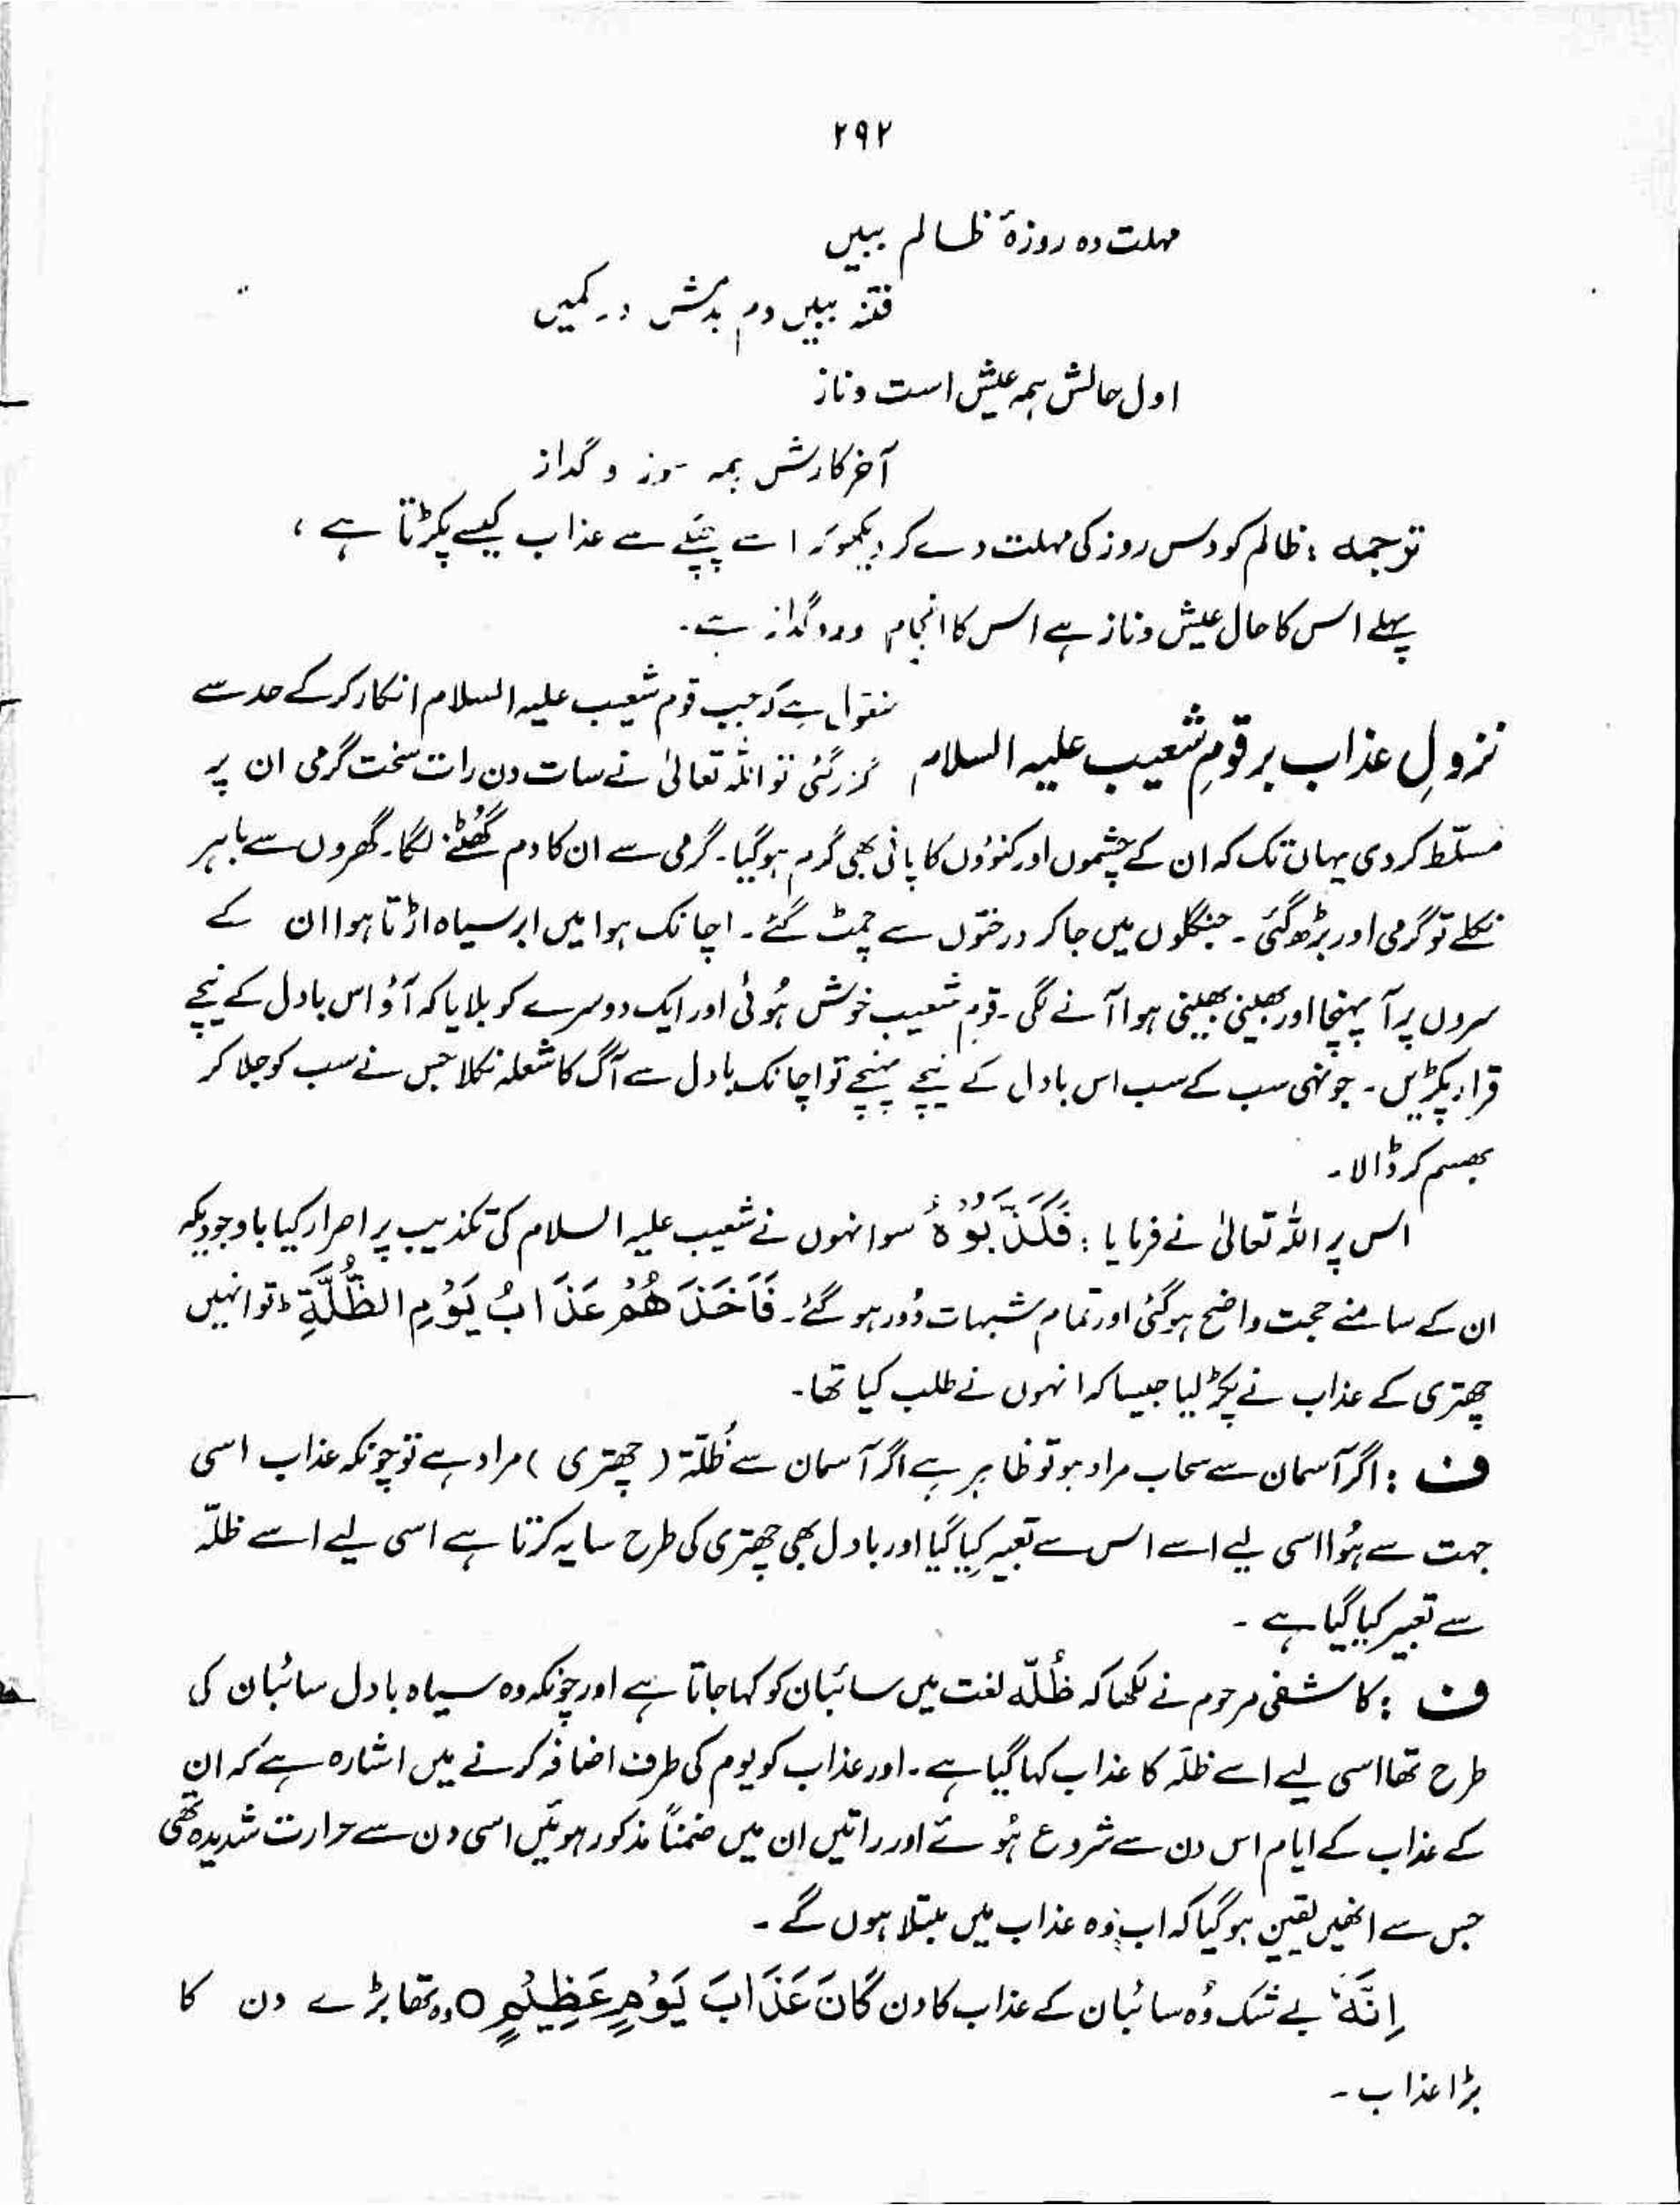 ۲۹۲
مہلت دہ روزۂ ظالم ببیں
فتنہ ببیں دم بدمش در کمیں
اول حالش ہمہ عیش است و ناز
آخر کارش ہمہ سوز و گداز
ترجمہ : ظالم کو دس روز کی مہلت دے کر دیکھو کہ اسے پیچھے سے عذاب کیسے پکڑتا ہے ،
پہلے اس کا حال عیش و ناز ہے اس کا انجام درد گداز ہے۔
نزولِ عذاب بر قومِ شعیب علیہ السلام
منقول ہے کہ جب قوم شعیب علیہ السلام انکار کر کے حد سے
گزر گئی تو اللہ تعالیٰ نے سات دن رات سخت گرمی ان پر
مسلّط کر دی یہاں تک کہ ان کے چشموں اور کنوؤں کا پانی بھی گرم ہو گیا۔ گرمی سے ان کا دم گھُٹنے لگا۔ گھروں سے باہر
نکلے تو گرمی اور بڑھ گئی۔ جنگلوں میں جا کر درختوں سے چمٹ گئے۔ اچانک ہوا میں ابر سیاہ اڑتا ہوا ان کے
سروں پر آ پہنچا اور بھینی بھینی ہوا آنے لگی۔ قوم شعیب خوش ہُوئی اور ایک دوسرے کو بلایا کہ آؤ اس بادل کے نیچے
قرار پکڑیں۔ جونہی سب کے سب اس بادل کے نیچے پہنچے تو اچانک بادل سے آگ کا شعلہ نکلا جس نے سب کو جلا کر
بھسم کر ڈالا۔
اس پر اللہ تعالیٰ نے فرمایا : فَكَذَّبُوْهُ سو انہوں نے شعیب علیہ السلام کی تکذیب پر اصرار کیا باوجودیکہ
ان کے سامنے حجت واضح ہو گئی اور تمام شبہات دُور ہو گئے۔ فَاَخَذَهُمْ عَذَابُ يَوْمِ الظُّلَّةِ ؕ تو انہیں
چھتری کے عذاب نے پکڑ لیا جیسا کہ انہوں نے طلب کیا تھا۔
ف : اگر آسمان سے سحاب مراد ہو تو ظاہر ہے اگر آسمان سے ظُلّۃ (چھتری) مراد ہے تو چونکہ عذاب اسی
جہت سے ہُوا اسی لیے اسے اس سے تعبیر کیا گیا اور بادل بھی چھتری کی طرح سایہ کرتا ہے اسی لیے اسے ظلّہ
سے تعبیر کیا گیا ہے۔
ف : کاشفی مرحوم نے لکھا کہ ظُلّہ لغت میں سائبان کو کہا جاتا ہے اور چونکہ وہ سیاہ بادل سائبان کی
طرح تھا اسی لیے اسے ظلّہ کا عذاب کہا گیا ہے۔ اور عذاب کو یوم کی طرف اضافہ کرنے میں اشارہ ہے کہ ان
کے عذاب کے ایام اس دن سے شروع ہُوئے اور راتیں ان میں ضمناً مذکور ہوئیں اسی دن سے حرارت شدیدہ تھی
جس سے انھیں یقین ہو گیا کہ اب وہ عذاب میں مبتلا ہوں گے۔
اِنَّهٗ بے شک وُہ سائبان کے عذاب کا دن كَانَ عَذَابَ يَوْمٍ عَظِيْمٍ ○ وہ تھا بڑے دن کا
بڑا عذاب۔